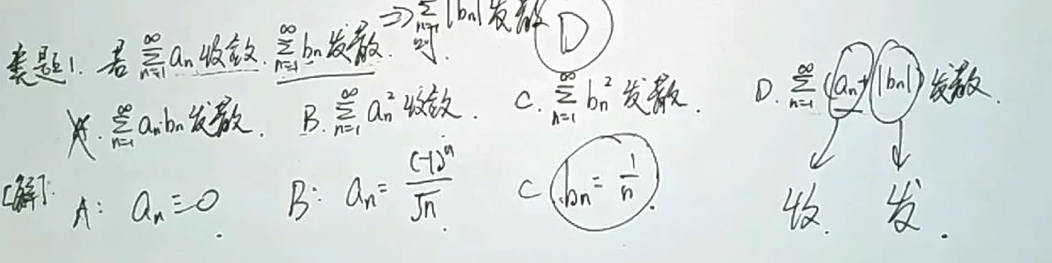 ⇒ ∑_{n=1}^{∞} |bn| 发散
类题1. 若 ∑_{n=1}^{∞} an 收敛. ∑_{n=1}^{∞} bn 发散. 时. D
A. ∑_{n=1}^{∞} an·bn 发散. B. ∑_{n=1}^{∞} an² 收敛. C. ∑_{n=1}^{∞} bn² 发散. D. ∑_{n=1}^{∞} (an+|bn|) 发散.
[解]: A: an≡0 B: an = (-1)^n/√n C bn = 1/n. 收. 发.